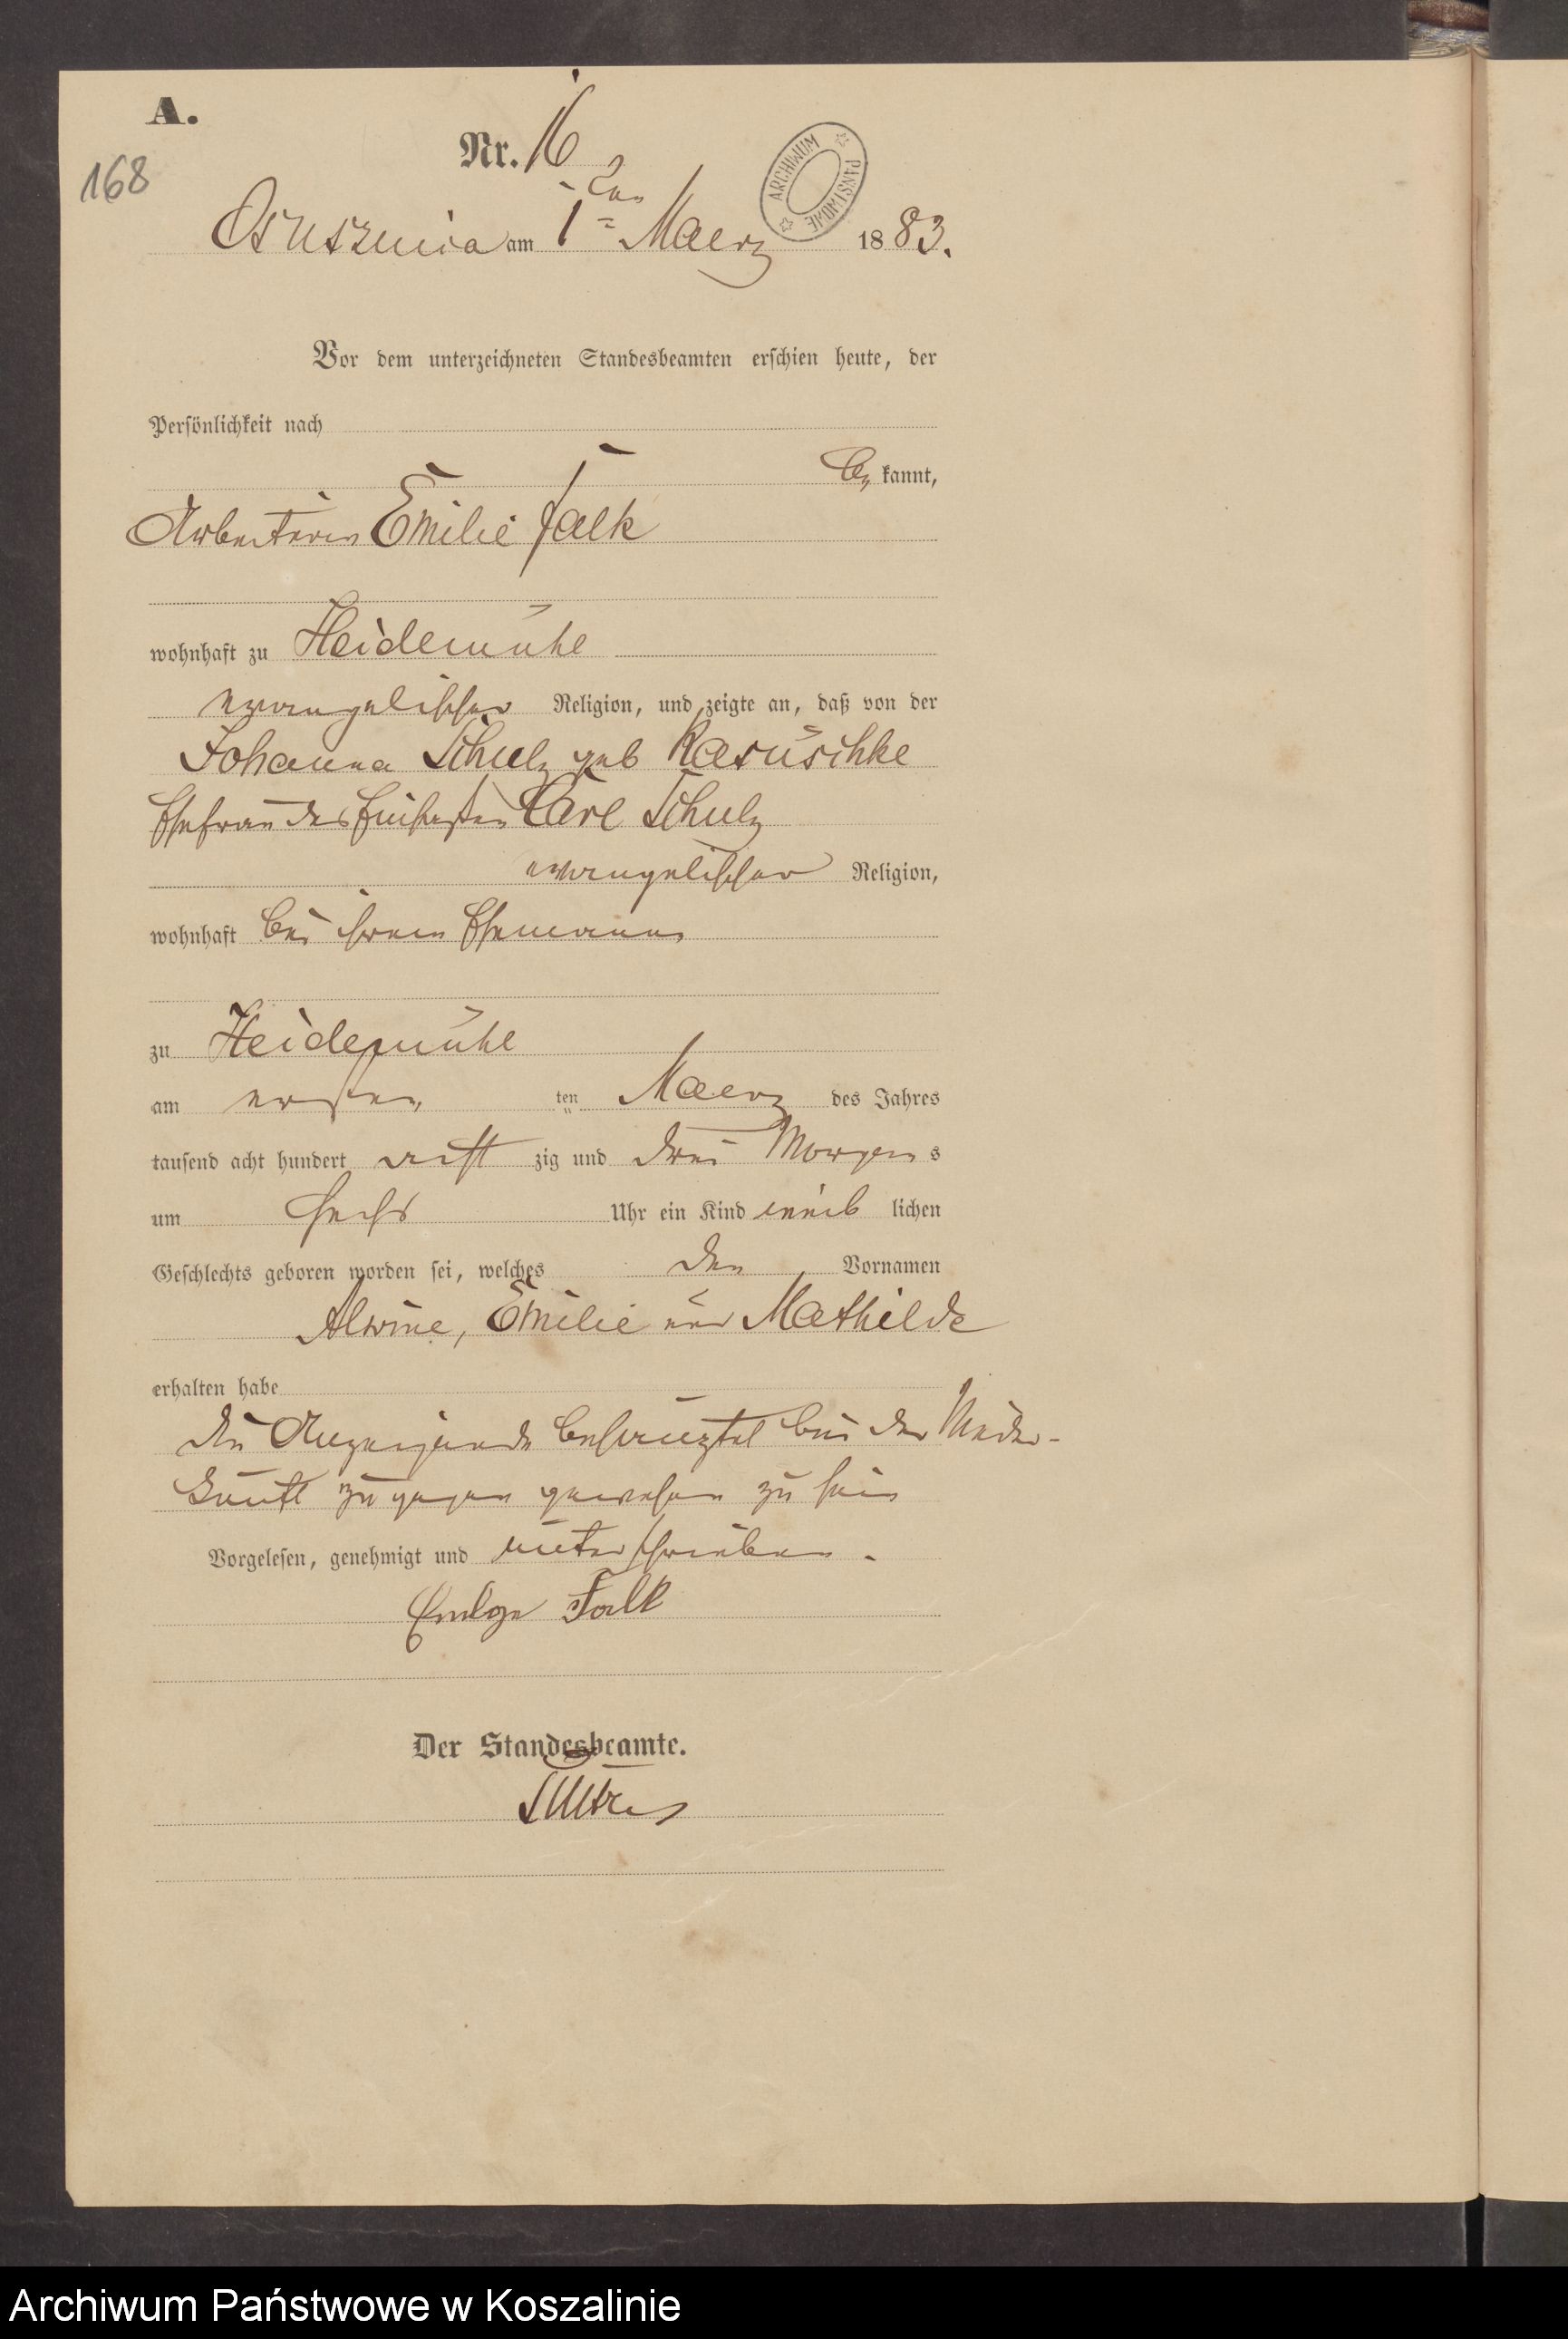 A.
168
Nr. 16
ARCHIWUM PAŃSTWOWE
Osusznica am 1ten Maerz 1883.
Vor dem unterzeichneten Standesbeamten erschien heute, der
Persönlichkeit nach
be kannt,
Arbeiterin Emilie Falk
wohnhaft zu Heidemühl
evangelischer Religion, und zeigte an, daß von der
Johanna Schulz geb Raruschke
Ehefrau des Carl Schulz
evangelischer Religion,
wohnhaft bei ihrem Ehemanne
zu Heidemühl
am ersten ten Maerz des Jahres
tausend acht hundert acht zig und drei Morgens
um sechs Uhr ein Kind weib lichen
Geschlechts geboren worden sei, welches den Vornamen
Alwine, Emilie und Mathilde
erhalten habe
die Anzeigende bei der Nieder-
kunft zugegen gewesen zu sein
Vorgelesen, genehmigt und unterschrieben.
Falk
Der Standesbeamte.
Archiwum Państwowe w Koszalinie